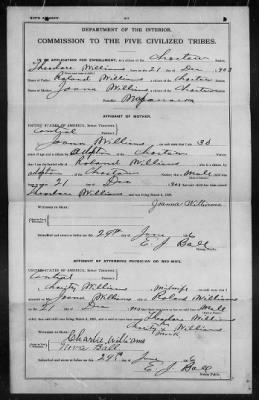 DEPARTMENT OF THE INTERIOR.
COMMISSION TO THE FIVE CIVILIZED TRIBES.
IN RE APPLICATION FOR ENROLLMENT, as a citizen of the Choctaw Nation,
of Theodore Williams born on the 21 day of Dec 1903
Name of Father: Roland Williams a citizen of the Choctaw Nation.
Name of Mother: Joana Williams a citizen of the Choctaw Nation.
Postoffice
AFFIDAVIT OF MOTHER.
UNITED STATES OF AMERICA, Indian Territory,
Central District.
I, Joana Williams, on oath state that I am 30
years of age and a citizen by adoption of the Choctaw Nation;
that I am the lawful wife of Roland Williams, who is a citizen, by
adoption of the Choctaw Nation; that a male child was
born to me on 21 day of Dec
Theodore Williams, and was living March 4, 1905.
Joanna Williams
29th June
E. J. Ball
Notary Public.
AFFIDAVIT OF ATTENDING PHYSICIAN OR MID-WIFE.
UNITED STATES OF AMERICA, Indian Territory,
Central District.
I, Charity Williams, a midwife, on oath state that I
attended on Mrs. Joana Williams, wife of Roland Williams
on the 21 day of Dec; that there was born to her on said date a male
child; that said child was living March 4, 1905, and is said to have been named Theodore Williams
her
Charity x Williams
mark
Charlie Williams
Ball
29th June
E. J. Ball
Notary Public.